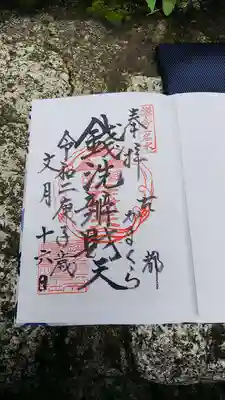 奉拝
古都
かまくら
銭洗辨財天
令和二庚子歳
文月
十六日